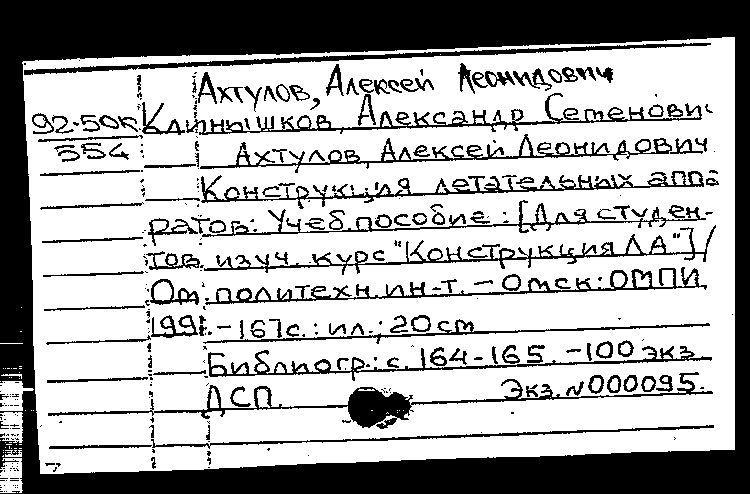 Ахтулов, Алексей Леонидович
92-50к Клинышков, Александр Семенович
554 Ахтулов, Алексей Леонидович
Конструкция летательных аппа
ратов: Учеб. пособие : [Для студен-
тов, изуч. курс "Конструкция ЛА"] /
Ом. политехн. ин-т. - Омск: ОМПИ,
1991. - 167с.: ил.; 20 cm
Библиогр.: с. 164-165. - 100 экз.
ДСП. Экз. N000095.